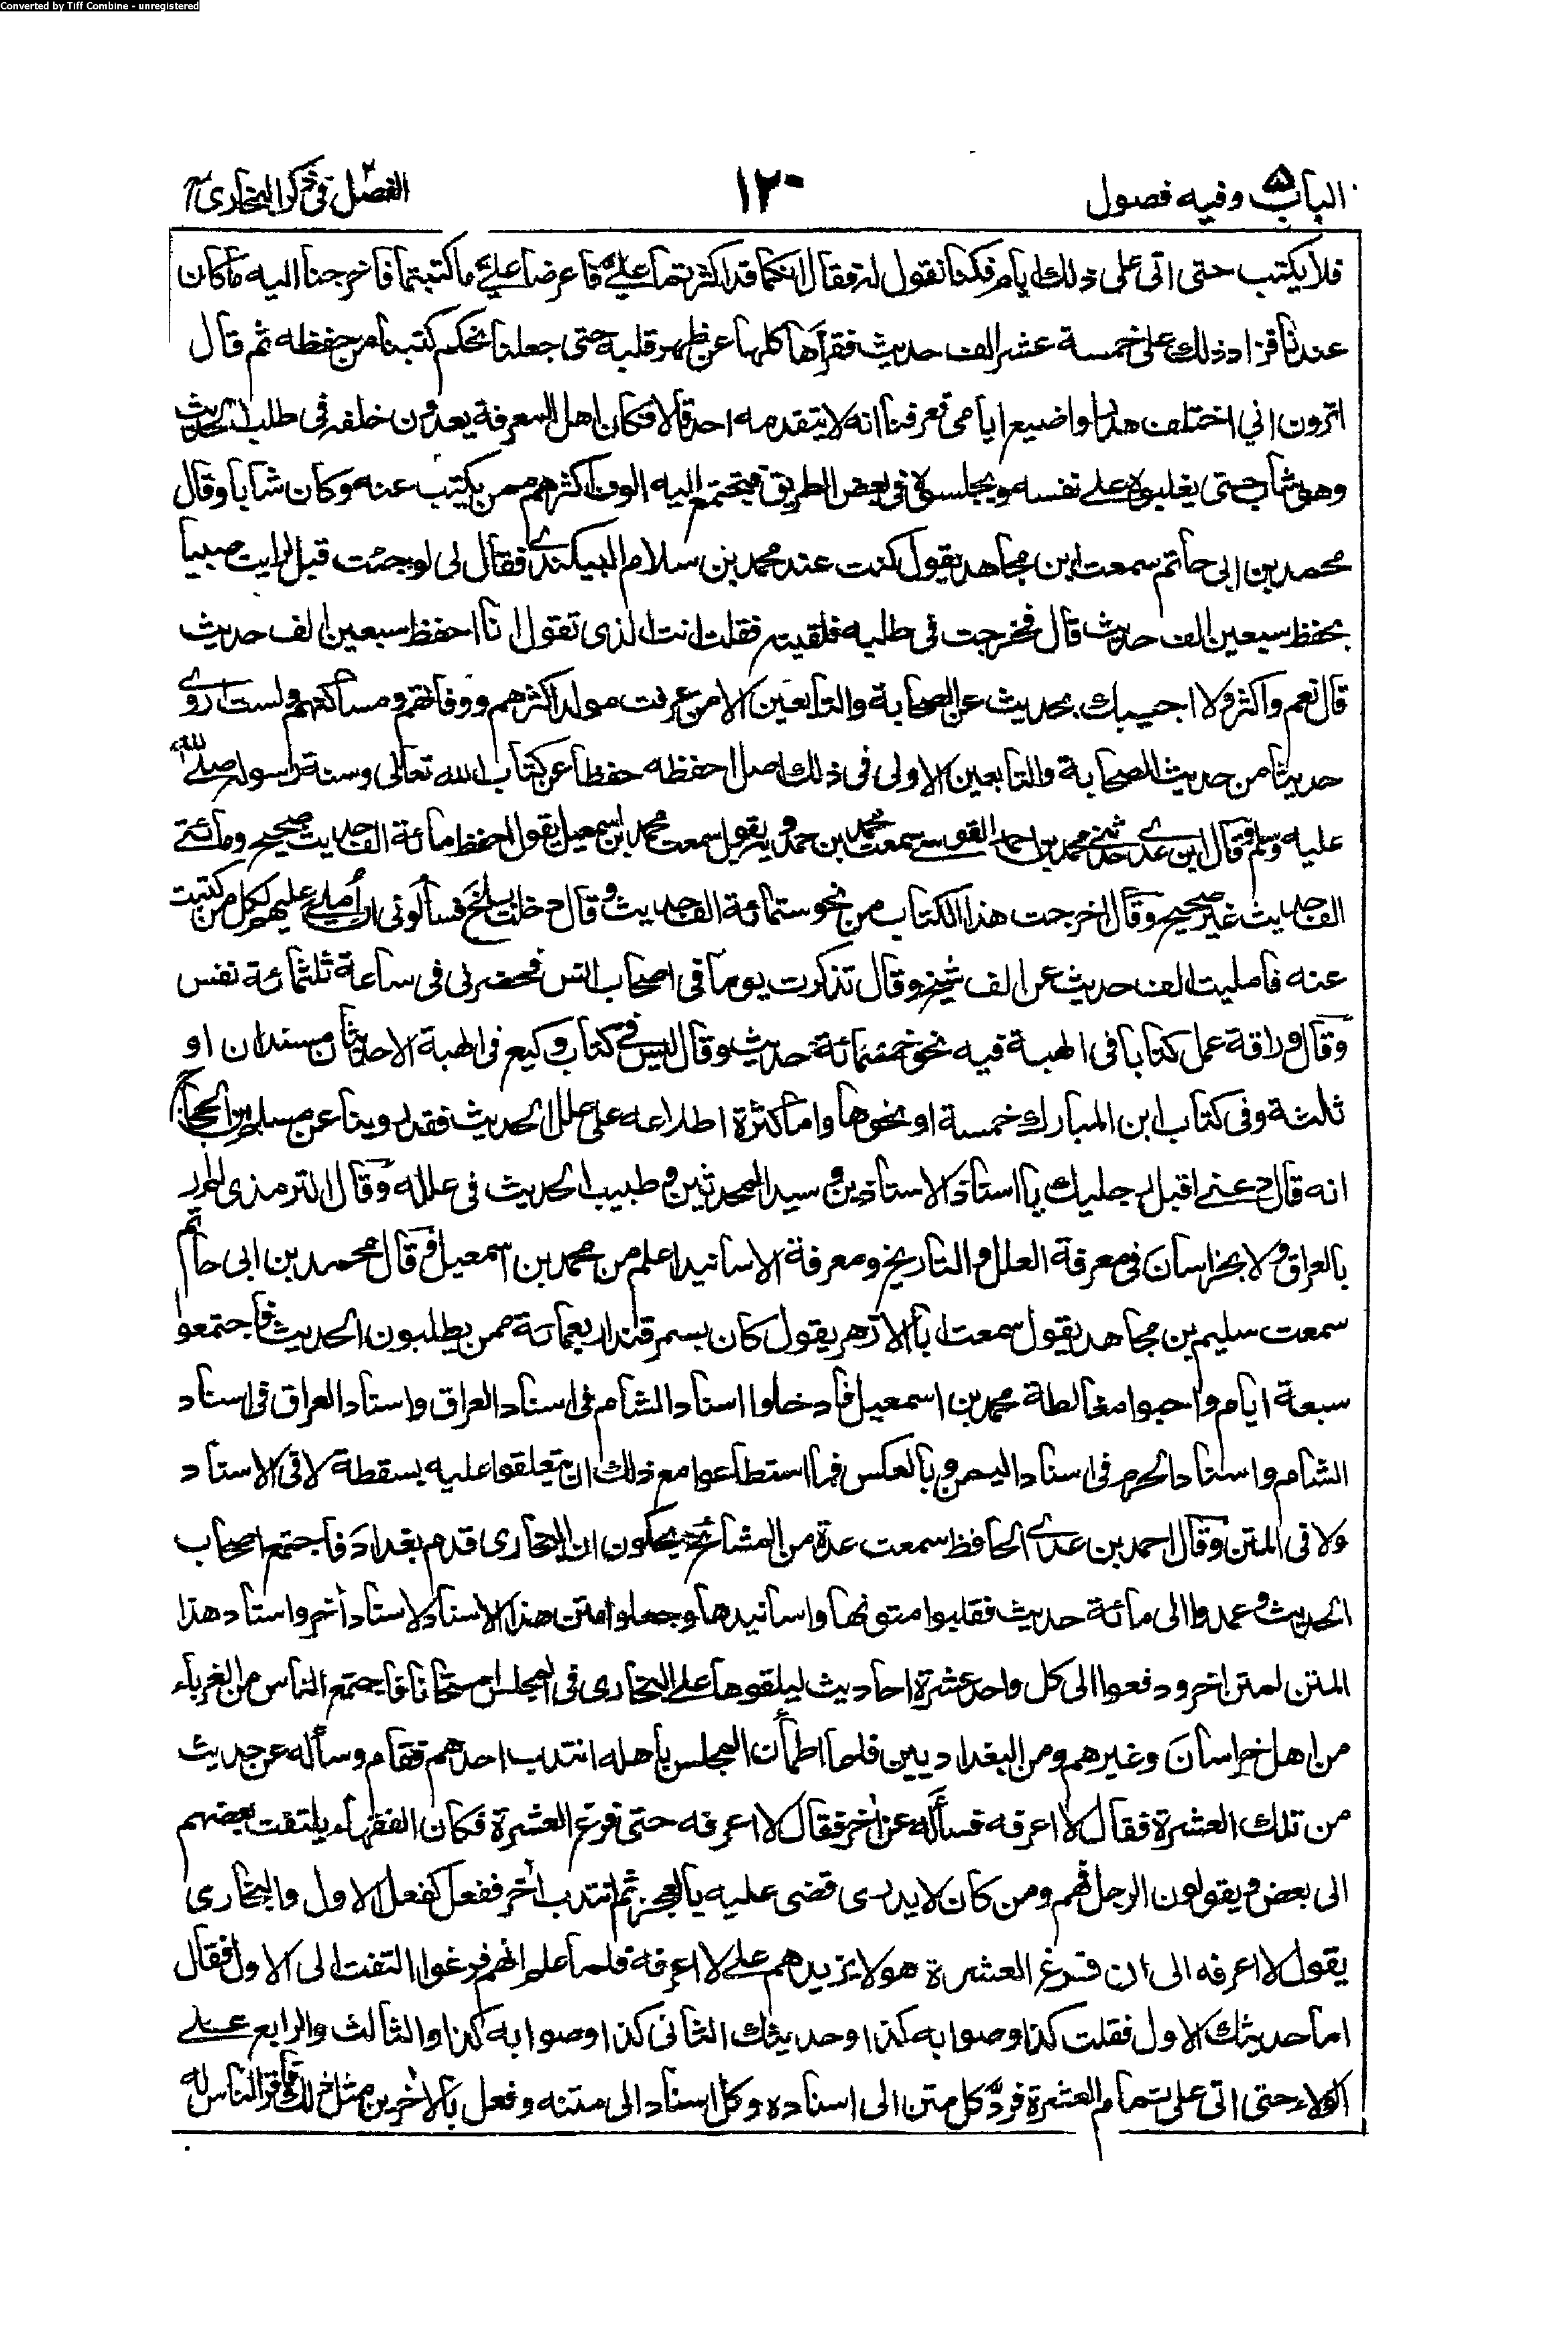 Converted by Tiff Combine - unregistered
الباب ٥ وفيه فصول
١٢٠
الفصل ٢ في ذكر البخاري
فلا يكتب حتى اتى على ذلك ايام فكنا نقول له فقال انكما قد اكثرتما علي فاعرضا علي ما كتبتما فاخرجنا اليه ما كان
عندنا فزاد ذلك على خمسة عشر الف حديث فقرأها كلها عن ظهر قلبه حتى جعلنا نحكم كتبنا من حفظه ثم قال
اترون اني اختلف هدرا واضيع ايامي فعرفنا انه لا يتقدمه احد قالا فكان اهل المعرفة يعدون خلفه في طلب الحديث
وهو شاب حتى يغلبوه على نفسه ويجلسوه في بعض الطريق فيجتمع اليه الوف اكثرهم ممن يكتب عنه وكان شابا وقال
محمد بن ابى حاتم سمعت ابن مجاهد يقول كنت عند محمد بن سلام البيكندي فقال لى لو جئت قبل لرايت صبيا
يحفظ سبعين الف حديث قال فخرجت في طلبه فلقيته فقلت انت الذي تقول انا احفظ سبعين الف حديث
قال نعم واكثر ولا اجيبك بحديث عن الصحابة والتابعين الا من عرفت مولد اكثرهم ووفاتهم ومساكنهم ولست اروي
حديثا من حديث الصحابة والتابعين الا ولى في ذلك اصل احفظه حفظا عن كتاب الله تعالى وسنة رسوله صلى الله
عليه وسلم وقال ابن عدي حدثني محمد بن احمد القومسي سمعت محمد بن حمدويه يقول سمعت محمد بن اسمعيل يقول احفظ مائة الف حديث صحيح ومائتي
الف حديث غير صحيح وقال اخرجت هذا الكتاب من نحو ستمائة الف حديث وقال دخلت بلخ فسألوني ان أملي عليهم لكل من كتبت
عنه فامليت الف حديث عن الف شيخ وقال تذكرت يوما في اصحاب انس فحضرني في ساعة ثلثمائة نفس
وقال وراقة عمل كتابا في الهبة فيه نحو خمسمائة حديث وقال ليس في كتاب وكيع في الهبة الا حديثان مسندان او
ثلثة وفي كتاب ابن المبارك خمسة او نحوها واما كثرة اطلاعه على علل الحديث فقد روينا عن مسلم بن الحجاج
انه قال دعني اقبل رجليك يا استاذ الاستاذين وسيد المحدثين وطبيب الحديث في علله وقال الترمذي لم ار
بالعراق ولا بخراسان في معرفة العلل والتاريخ ومعرفة الاسانيد اعلم من محمد بن اسمعيل وقال محمد بن ابى حاتم
سمعت سليم بن مجاهد يقول سمعت ابا الازهر يقول كان بسمرقند اربعمائة ممن يطلبون الحديث فاجتمعوا
سبعة ايام واحبوا مغالطة محمد بن اسمعيل فأدخلوا اسناد الشام في اسناد العراق واسناد العراق في اسناد
الشام واسناد الحرم في اسناد اليمن وبالعكس فما استطاعوا مع ذلك ان يتعلقوا عليه بسقطة لا في الاسناد
ولا في المتن وقال احمد بن عدي الحافظ سمعت عدة من المشائخ يحكون ان البخاري قدم بغداد فاجتمع اصحاب
الحديث وعمدوا الى مائة حديث فقلبوا متونها واسانيدها وجعلوا متن هذا الاسناد لاسناد أخر واسناد هذا
المتن لمتن اخر ودفعوا الى كل واحد عشرة احاديث ليلقوها على البخاري في المجلس امتحانا فاجتمع الناس من الغرباء
من اهل خراسان وغيرهم ومن البغداديين فلما اطمأن المجلس بأهله انتدب احدهم فقام وسأله عن حديث
من تلك العشرة فقال لا اعرفه فسأله عن أخر فقال لا اعرفه حتى فرغ العشرة فكان الفقهاء يلتفت بعضهم
الى بعض ويقولون الرجل فهم ومن كان لا يدري قضى عليه بالعجز ثم انتدب أخر ففعل كفعل الاول والبخاري
يقول لا اعرفه الى ان فرغ العشرة وهو لا يزيدهم على لا اعرفه فلما علم انهم فرغوا التفت الى الاول فقال
اما حديثك الاول فقلت كذا وصوابه كذا وحديثك الثاني كذا وصوابه كذا والثالث والرابع على
الولاء حتى اتى على تمام العشرة فردّ كل متن الى اسناده وكل اسناد الى متنه وفعل بالأخرين مثل ذلك فاقر الناس له